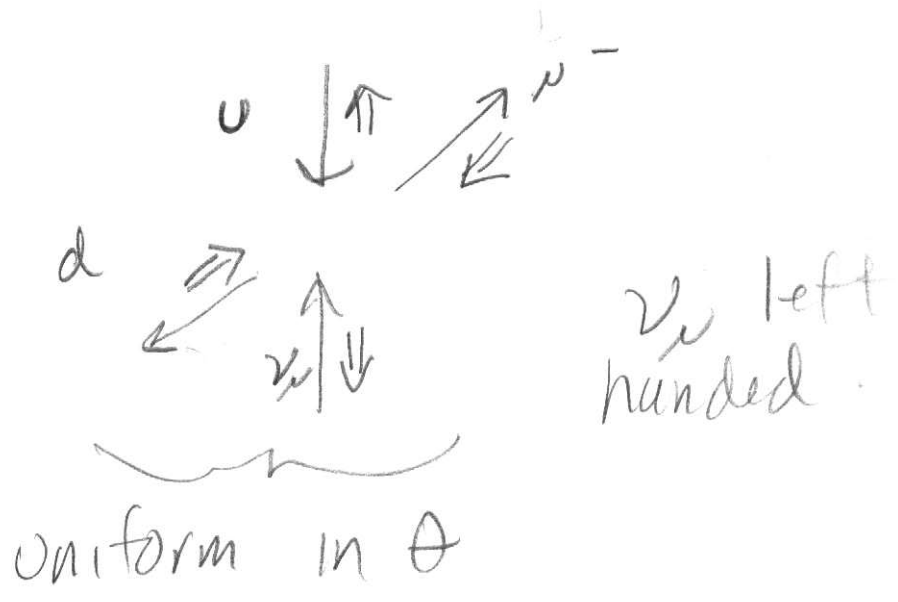 μ⁻
u
d
ν_μ
ν_μ left
handed.
uniform in θ